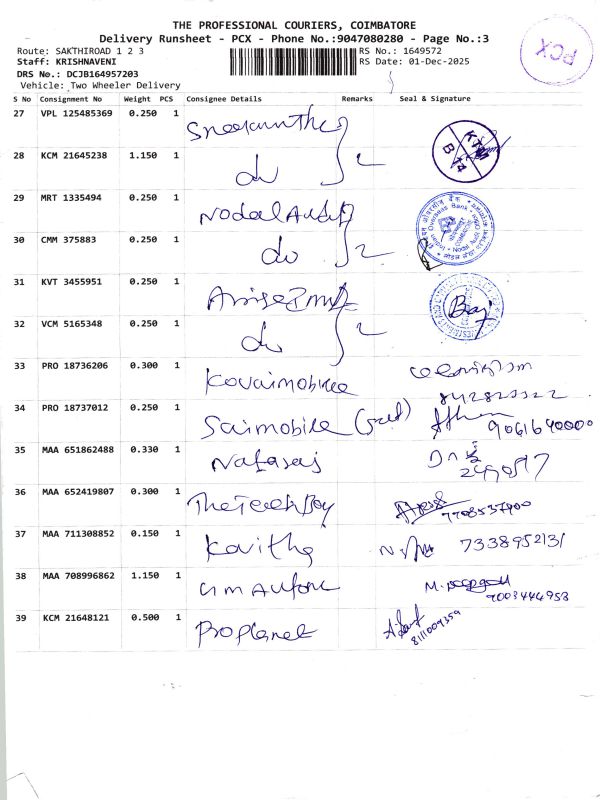 THE PROFESSIONAL COURIERS, COIMBATORE
Delivery Runsheet - PCX - Phone No.:9047080280 - Page No.:3
PCX
Route: SAKTHIROAD 1 2 3
RS No.: 1649572
Staff: KRISHNAVENI
RS Date: 01-Dec-2025
DRS No.: DCJB164957203
Vehicle: Two Wheeler Delivery
S No Consignment No Weight PCS Consignee Details Remarks Seal & Signature
27 VPL 125485369 0.250 1
28 KCM 21645238 1.150 1 do } 2
29 MRT 1335494 0.250 1 Nodal Audit
30 CMM 375883 0.250 1 do } 2
31 KVT 3455951 0.250 1
32 VCM 5165348 0.250 1 do } 2
33 PRO 18736206 0.300 1 Kovaimobile
34 PRO 18737012 0.250 1 Saimobile
9061640000
35 MAA 651862488 0.330 1 Natasaj
36 MAA 652419807 0.300 1 TheTeechBoy
7708537900
37 MAA 711308852 0.150 1 Kavitha 7338952131
38 MAA 708996862 1.150 1
9003444958
39 KCM 21648121 0.500 1 Proplanet
8111009359